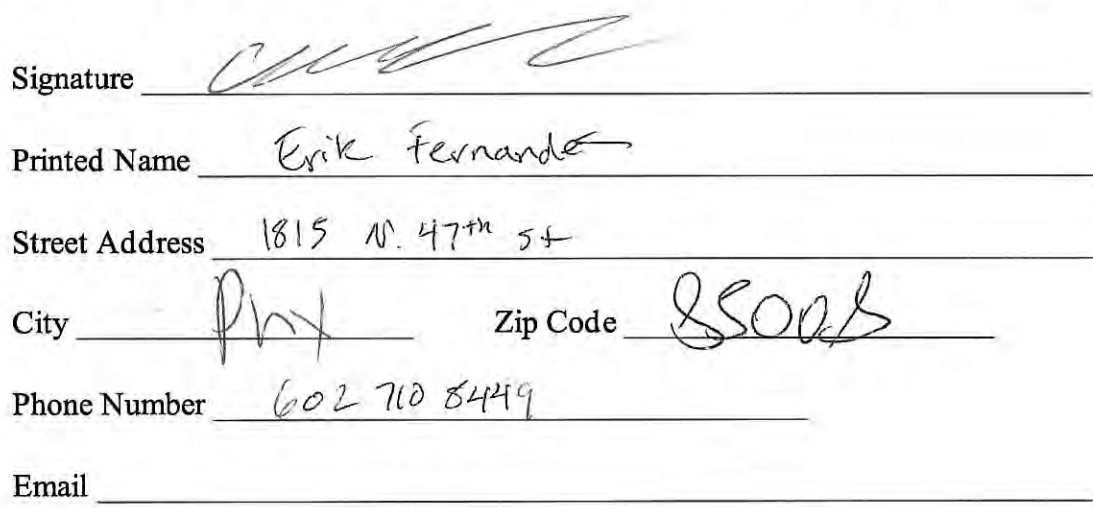 Signature
Printed Name Erik Fernandez
Street Address 1815 N. 47th St
City Phx Zip Code 85008
Phone Number 602 710 8449
Email